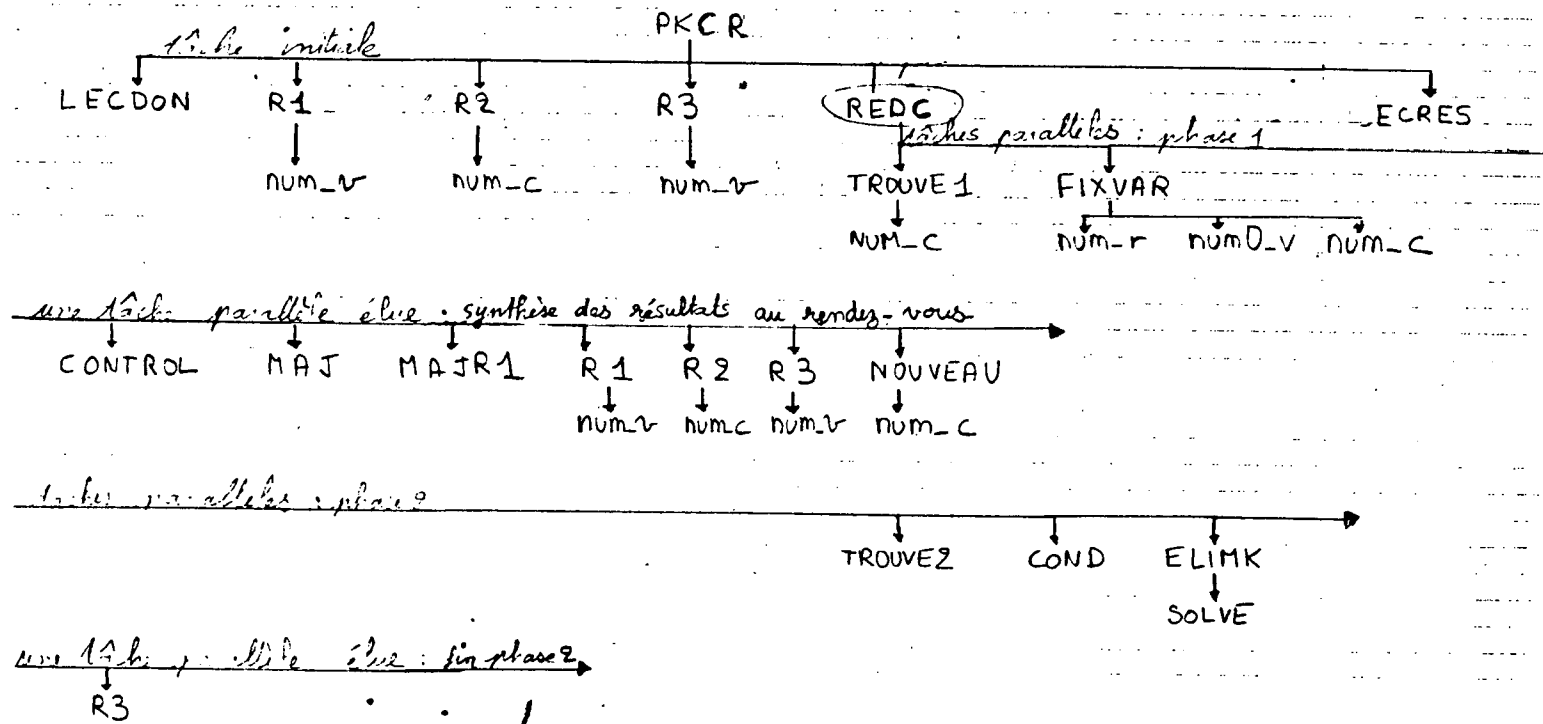 PKCR
tâche initiale
LECDON R1 R2 R3 REDC ECRES
tâches parallèles : phase 1
num_v num_c num_v TROUVE1 FIXVAR
NUM_C num_r num0_v num_c
une tâche parallèle élue : synthèse des résultats au rendez-vous
CONTROL MAJ MAJR1 R1 R2 R3 NOUVEAU
num_v numc num_v num_c
tâches parallèles : phase 2
TROUVE2 COND ELIMK
SOLVE
une tâche parallèle élue : fin phase 2
R3